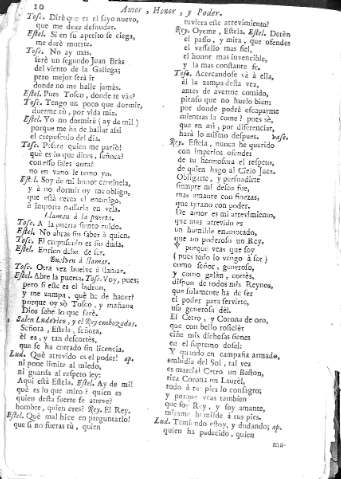 10
Amor, Honor, y Poder.
Tosc. Diré que es el sayo nuevo,
que me dexa desnudar.
Estel. Si en su apetito se ciega,
me daré muerte.
Tosc. No ay mas,
será un segundo Juan Brás
del viento de la Gallega;
pero mejor será ir
donde no me halle jamás.
Estel. Pues Tosco, donde te vás?
Tosc. Tengo un poco que dormir,
duerme tú, por vida mia.
Estel. Yo no dormiré (ay de mi!)
porque me ha de hallar assi
el crepusculo del dia.
Tosc. quien me parió!
qué es lo que dices, señora?
en vano le temo yo.
Estel. Soy de mi honor centinela,
y á no dormir me obligo,
que está cerca el enemigo,
é importa passarla en vela.
Llaman á la puerta.
Tosc. A la puerta siento ruido.
Estel. No abras sin saber á quien.
Tosc. El crepusculo es sin duda.
Estel. de ser.
Buelven á llamar.
Tosc. Otra vez buelve á llamar.
Estel. Abre la puerta. Tosc. Voy, pues;
pero si esse es el ladron,
y me vampa, qué he de hacer?
porque oy só Tosco, y mañana
Dios sabe lo que seré.
Salen Ludovico, y el Rey embozados.
Señora, Estela, señora,
él es, y tan descortés,
que se ha entrado sin licencia.
Lud. Qué atrevido es el poder! ap.
ni pone limite al miedo,
ni guarda al respeto ley:
Aqui está Estela. Estel. Ay de mi!
qué es lo que miro? quien es
quien desta suerte se atreve?
hombre, quien eres? Rey. El Rey.
Estel. Qué mal hice en preguntarlo!
que si no fueras tú, quien
tuviera este atrevimiento?
Rey. Oyeme, Estela. Estel. Detén
el passo, y mira, que ofendes
el vassallo mas fiel,
el honor mas invencible,
y la mas constante fe.
Tosc. Acercandose vá á ella,
él la zampa desta vez,
antes de averme comido,
pienso que no huelo bien:
por donde podré escaparme
mientras la come? pues sé,
que en mi, por diferenciar,
hará lo mismo despues. vase.
Rey. Estela, nunca he querido
con imperios ofender
de tu hermosura el respeto,
de quien hago al Cielo Juez.
Obligarte, y persuadirte
siempre mi deseo fue,
mas amante con finezas,
que tyrano con poder.
De amor es mi atrevimiento,
que mas atrevido es
un humilde enamorado,
que un poderoso un Rey.
Y porque veas que soy
(pues todo lo vengo á ser)
como señor, generoso,
y como galán, cortés,
dispon de todos mis Reynos,
que solamente ha de ser
el poder para servirte,
usa generosa dél.
El Cetro, y Corona de oro,
que con bello rosicler
ciñe mis dichosas sienes
en el supremo dosel:
Y quando en campaña armado,
embidia del Sol, tal vez
es marcial Cetro un Baston,
rica Corona un Laurél,
todo á tu pies lo consagro;
y porque veas tambien
que soy Rey, y soy amante,
mirame humilde á tus pies.
Lud. Temiendo estoy, y dudando; ap.
quien ha padecido, quien